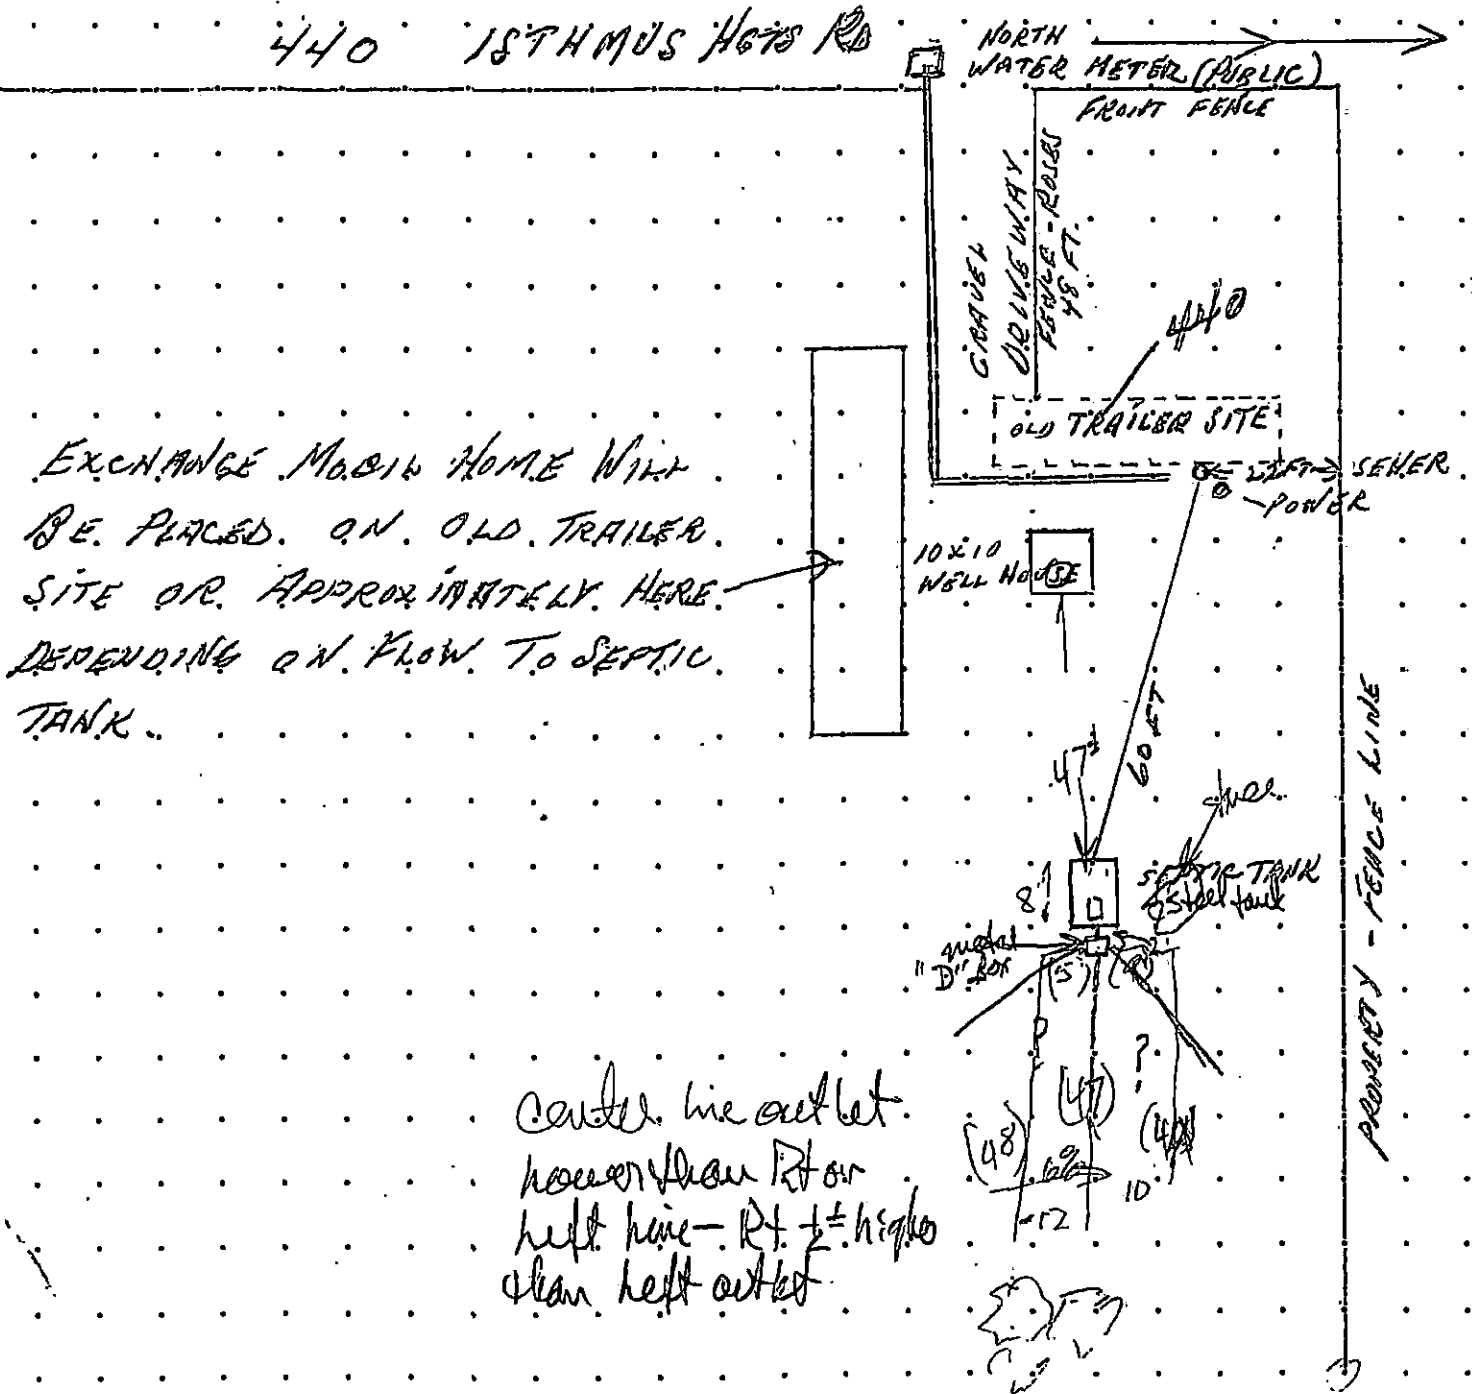 440 ISTHMUS HGTS RD
NORTH
WATER METER (PUBLIC)
FRONT FENCE
GRAVEL
DRIVEWAY
FENCE - ROSES
48 FT.
440
OLD TRAILER SITE
LIFT SEWER
POWER
EXCHANGE MOBIL HOME WILL
BE PLACED ON OLD TRAILER
SITE OR APPROXIMATELY HERE
DEPENDING ON FLOW TO SEPTIC
TANK.
10 X 10
WELL HOUSE
60 FT
47'
8'
SEPTIC TANK
steel tank
metal
"D" BOX
(5')
PROPERTY - FENCE LINE
?
(47)
(48)
10
12
center line outlet
lower than Rt or
Left line - Rt ½± higher
than Left outlet